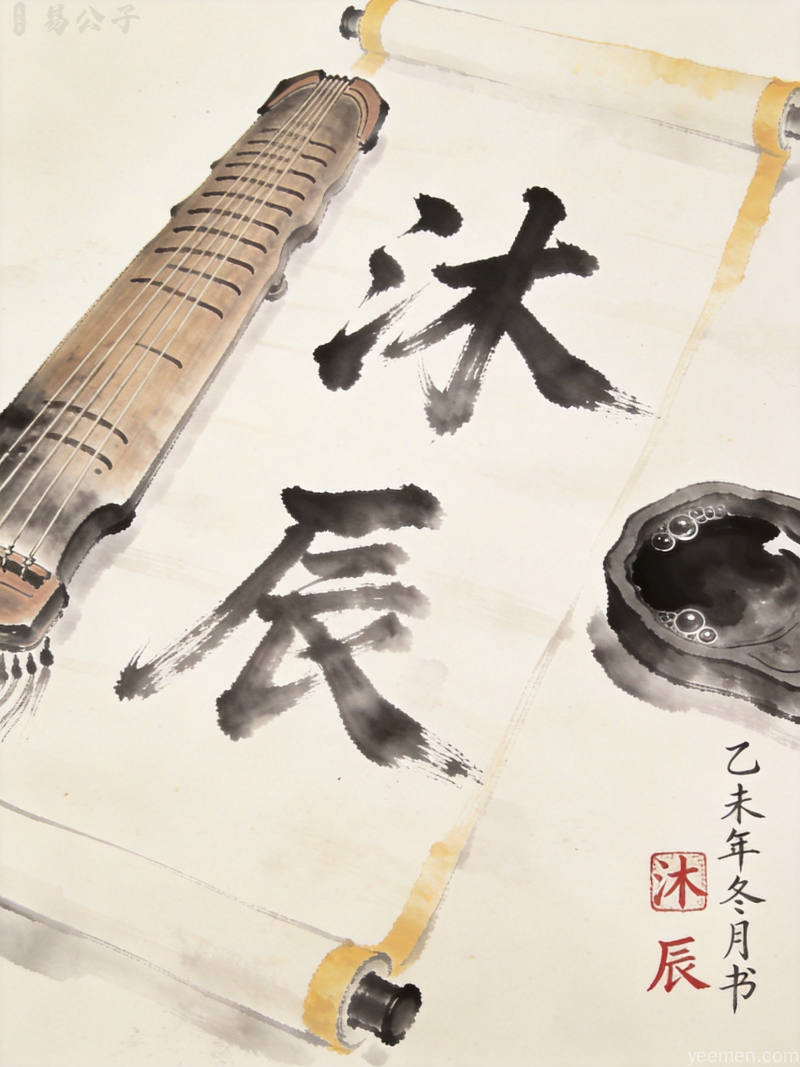 易公子
沐
辰
乙未年冬月书
沐
辰
yeemen.com